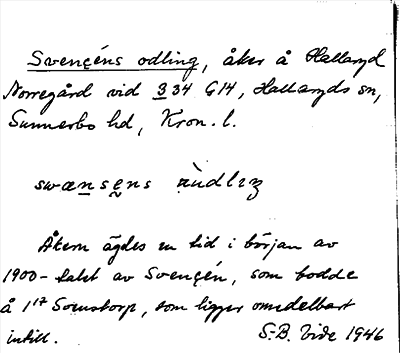 Svençéns odling, åker å Hallaryd
Norregård vid 334 G14, Hallaryds sn,
Sunnerbo hd, Kron. l.
swænsens
Åkern ägdes en tid i början av
1900-talet av Svençén, som bodde
å 1 Somstorp, som ligger omedelbart
intill. S.-B. Vide 1946